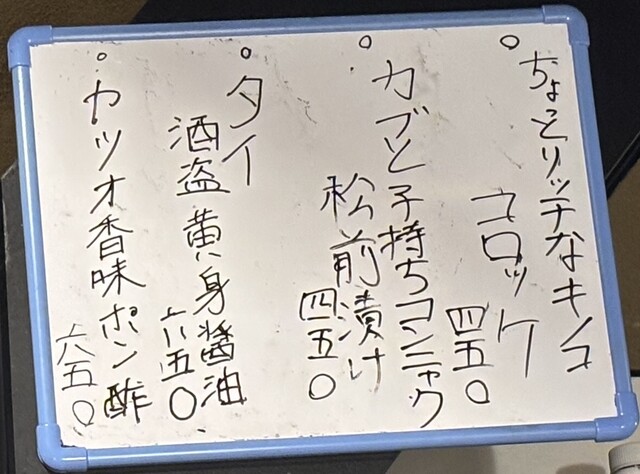 ちょっとリッチなキノコ
コロッケ
四五〇
カブと子持ちコンニャク
松前漬け
四五〇
タイ
酒盗黄身醤油
六五〇
カツオ香味ポン酢
六五〇